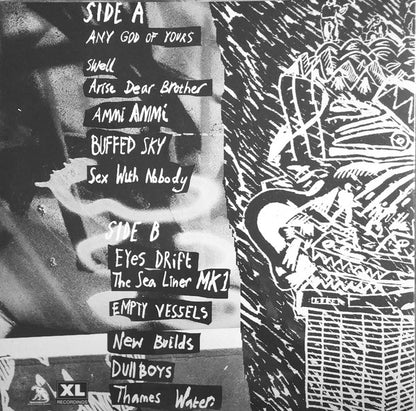 SIDE A
ANY GOD OF YOURS
Swell
Arise Dear Brother
AMMi AMMi
BUFFED SKY
Sex With Nobody
SIDE B
EYES DRiFT
The Sea Liner MK1
EMPTY VESSELS
New Builds
Dull BOYS
Thames Water
XL
RECORDINGS